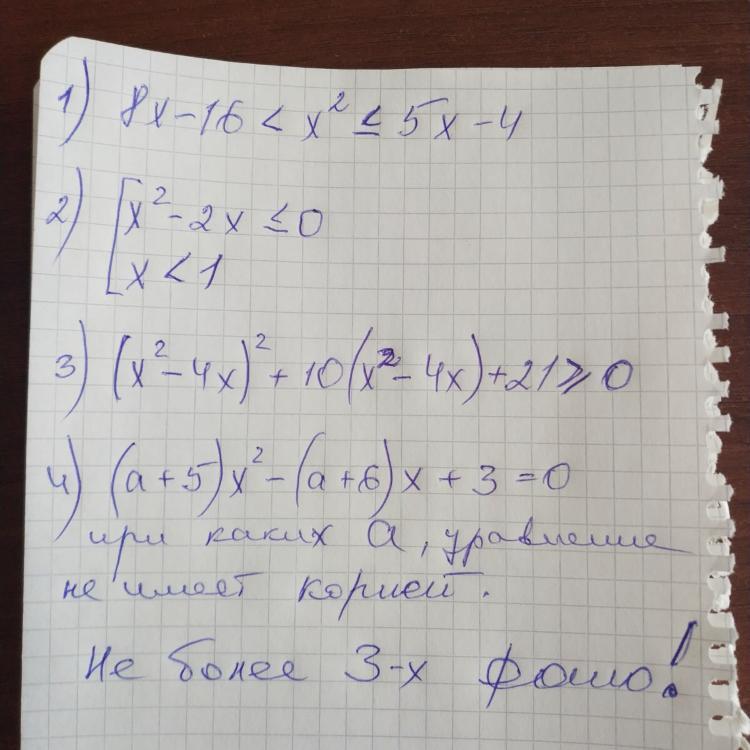 1) 8x-16 < x² ≤ 5x-4
2) [ x² - 2x ≤ 0
x < 1
3) (x² - 4x)² + 10(x² - 4x) + 21 ≥ 0
4) (a+5)x² - (a+6)x + 3 = 0
при каких a, уравнение
не имеет корней.
Не более 3-х фото!